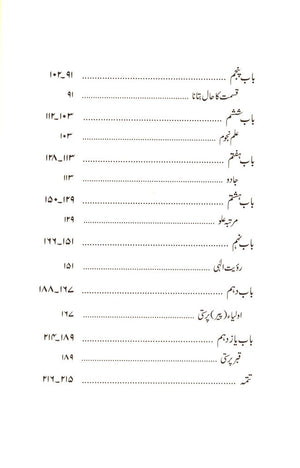 باب پنجم ........................ ۹۱_۱۰۲
قسمت کا حال بتانا ........................ ۹۱
باب ششم ........................ ۱۰۳_۱۱۲
علم نجوم ........................ ۱۰۳
باب ہفتم ........................ ۱۱۳_۱۲۸
جادو ........................ ۱۱۳
باب ہشتم ........................ ۱۲۹_۱۵۰
مرتبہ علو ........................ ۱۲۹
باب نہم ........................ ۱۵۱_۱۶۶
رؤیت الٰہی ........................ ۱۵۱
باب دہم ........................ ۱۶۷_۱۸۸
اولیاء (پیر) پرستی ........................ ۱۶۷
باب یازدہم ........................ ۱۸۹_۲۱۴
قبر پرستی ........................ ۱۸۹
تتمہ ........................ ۲۱۵_۲۱۶